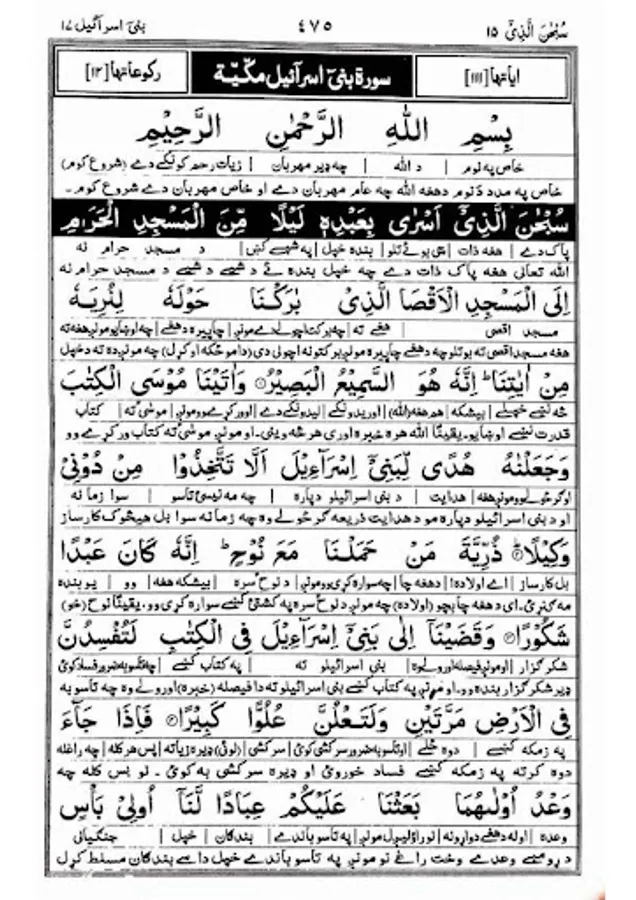 سُبْحٰنَ الَّذِیْۤ ١٥ ٤٧٥ بنیۤ اسرآئیل ١٧
اٰیاتها [١١١] سورة بنیۤ اسرآئیل مكّیّة ركوعاتها [١٢]
بِسْمِ اللّٰهِ الرَّحْمٰنِ الرَّحِیْمِ
خاص په نوم | د الله | چه ډیر مهربان | زیات رحم كونكے دے (شروع كوم)
خاص په مدد د نوم دهغه الله چه عام مهربان دے او خاص مهربان دے شروع كوم۔
سُبْحٰنَ الَّذِیْۤ اَسْرٰی بِعَبْدِهٖ لَیْلًا مِّنَ الْمَسْجِدِ الْحَرَامِ
پاک دے | هغه ذات | چه بوئے تلو | بنده خپل | په شپے كښ | د مسجد حرام نه
الله تعالی هغه پاک ذات دے چه خپل بنده ئے د شپے د شپے د مسجد حرام نه
اِلَی الْمَسْجِدِ الْاَقْصَا الَّذِیْ بٰرَكْنَا حَوْلَهٗ لِنُرِیَهٗ
مسجد اقصی | هغے ته | چه بركت اچولے دے مونږ | چاپیره دهغے | چه اوښایو مونږ هغه ته
هغه مسجد اقصی ته بوتلو چه دهغے چاپیره مونږ بركتونه اچولی دی (دا موځكه اوكړل) چه مونږ ده ته دخپل
مِنْ اٰیٰتِنَا ؕ اِنَّهٗ هُوَ السَّمِیْعُ الْبَصِیْرُ وَاٰتَیْنَا مُوْسَی الْكِتٰبَ
څه نښے خپلے | بیشكه | هم هغه (الله) | اوریدونكے | لیدونكے دے | اوور كړے وو مونږ | موسیٰ ته | كتاب
قدرت نښے اوښایو۔ یقینًا الله هره خبره اوری هر څه وینی۔ او مونږ موسیٰ ته كتاب وركړے وو
وَجَعَلْنٰهُ هُدًی لِّبَنِیْۤ اِسْرَآءِیْلَ اَلَّا تَتَّخِذُوْا مِنْ دُوْنِیْ
اوګرځولے وو مونږ هغه | هدایت | د بنی اسرائیلو دپاره | چه مه نیسئ تاسو | سوا زما نه
او د بنی اسرائیلو دپاره مو د هدایت ذریعه ګرځولے وه چه زما نه سوا بل هیڅوک كارساز
وَكِیْلًا ذُرِّیَّةَ مَنْ حَمَلْنَا مَعَ نُوْحٍ ؕ اِنَّهٗ كَانَ عَبْدًا
بل كارساز | اے اولاده! | دهغه چا | چه سواره كړی وو مونږ | د نوح سره | بیشكه هغه | وو | یو بنده
مه ګنړئ۔ ای دهغه چا بچو (اولاده) چه مونږ د نوح سره په كشتئ كښے سواره كړی وو۔ یقینًا نوح (خو)
شَكُوْرًا وَقَضَیْنَاۤ اِلٰی بَنِیْۤ اِسْرَآءِیْلَ فِی الْكِتٰبِ لَتُفْسِدُنَّ
شكر ګزار | او مونږ فیصله اورولے وه | بنی اسرائیلو ته | په كتاب كښے | چه تاسو به ضرور فساد كوئ
ډیر شكر ګزار بنده وو۔ او مونږ په كتاب كښے بنی اسرائیلو ته دا فیصله (خبره) اورولے وه چه تاسو به
فِی الْاَرْضِ مَرَّتَیْنِ وَلَتَعْلُنَّ عُلُوًّا كَبِیْرًا فَاِذَا جَآءَ
په زمكه كښے | دوه ځلے | او تاسو به ضرور سركشی كوئ | سركشی | (لوئی) ډیره زیاته | پس هركله | چه راغله
دوه كرته په زمكه كښے فساد خوروئ او ډیره سركشی به كوئ۔ نو پس كله چه
وَعْدُ اُوْلٰىهُمَا بَعَثْنَا عَلَیْكُمْ عِبَادًا لَّنَاۤ اُولِیْ بَاْسٍ
وعده | اوله دهغے دواړو نه | نو را اولیږل مونږ | په تاسو باندے | بندګان | خپل | جنګیانی
د ړومبے وعدے وخت راغے نو مونږ په تاسو باندے خپل داسے بندګان مسلط كړل